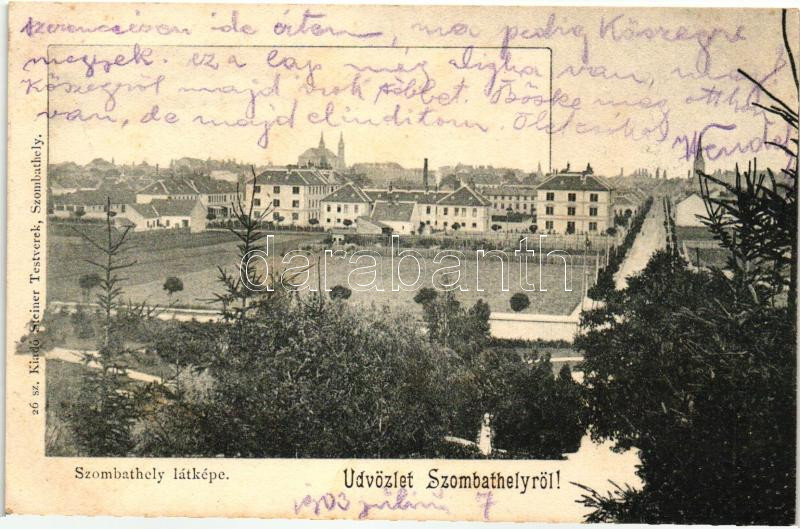 szerencsésen ide értem, ma pedig Kőszegre
megyek. ez a lap még
Kőszegről majd írok többet. Böske még otthon
van, de majd elindítom. Ölel csókol
26 sz. Kiadó Steiner Testverek, Szombathely.
darabanth
Szombathely látképe.
Udvözlet Szombathelyröl!
1903 július 7